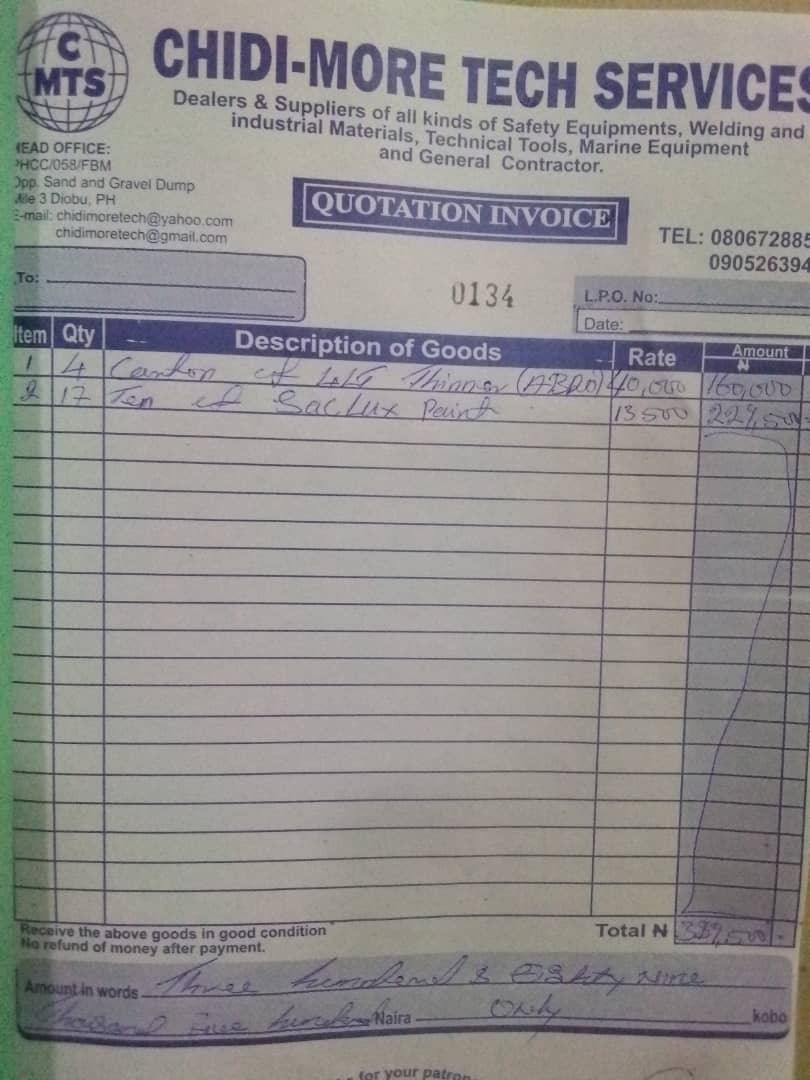 C
MTS
CHIDI-MORE TECH SERVICES
Dealers & Suppliers of all kinds of Safety Equipments, Welding and
industrial Materials, Technical Tools, Marine Equipment
and General Contractor.
HEAD OFFICE:
PHCC/058/FBM
Opp. Sand and Gravel Dump
Mile 3 Diobu, PH
E-mail: chidimoretech@yahoo.com
chidimoretech@gmail.com
QUOTATION INVOICE
TEL: 080672885
090526394
To:
0134
L.P.O. No:
Date:
Item Qty Description of Goods Rate Amount
₦
1 4 Canton of Thinner (ABRO) 40,000 160,000
2 17 Ten of Saclux Paint 13500 229,500
Receive the above goods in good condition
No refund of money after payment.
Total ₦ 389,500
Amount in words Three hundred & Eighty Nine
Thousand Five hundred Naira Only kobo
for your patron